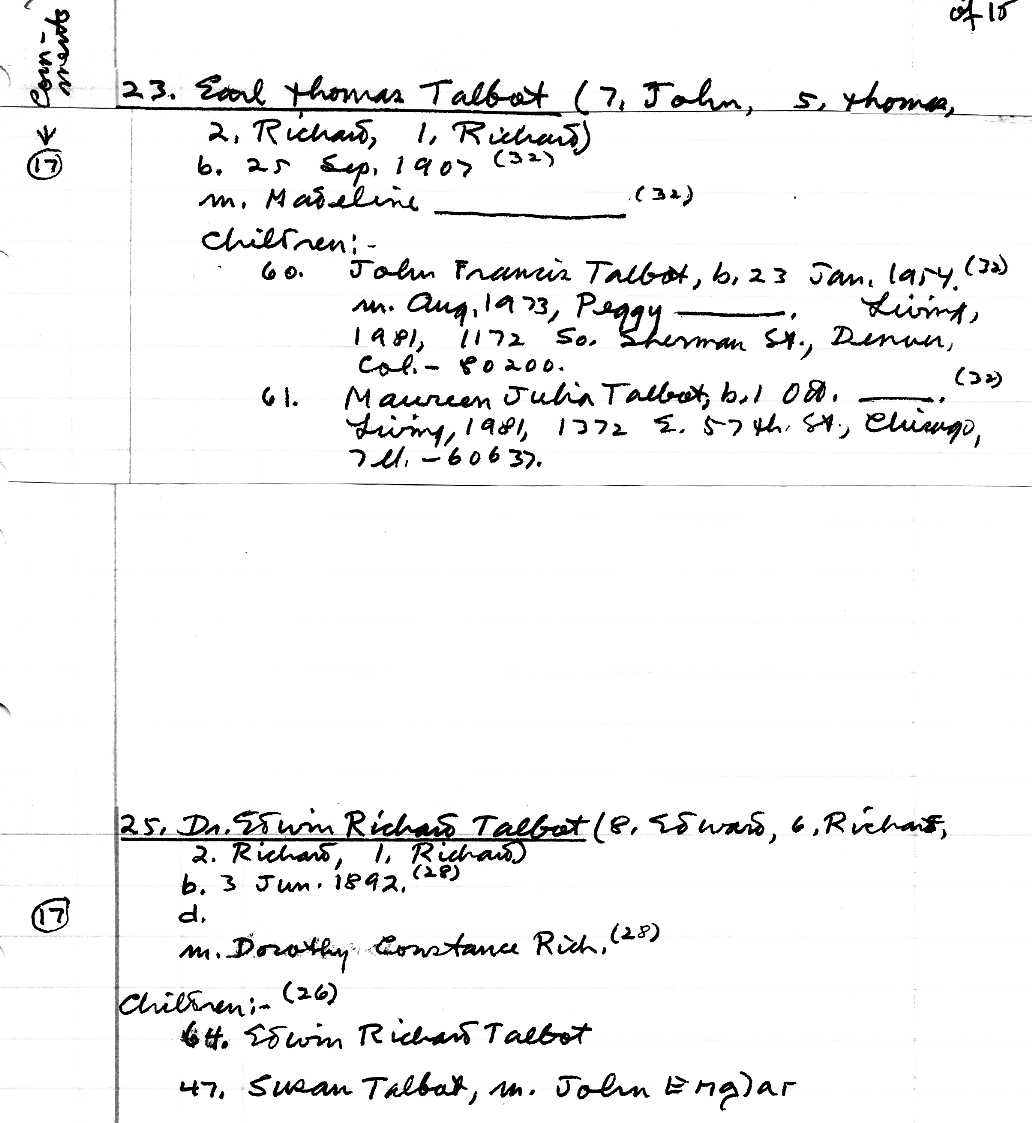 of 15
Com-
ments
23. Earl Thomas Talbot (7, John, 5, Thomas,
2, Richard, 1, Richard)
17
b. 25 Sep. 1907 (32)
m. Madeline ________ (32)
Children:-
60. John Francis Talbot, b. 23 Jan. 1954. (32)
m. Aug. 1973, Peggy ______. Living,
1981, 1172 So. Sherman St., Denver,
Col. - 80200.
61. Maureen Julia Talbot, b. 1 Oct. ____. (32)
Living, 1981, 1372 E. 57th. St., Chicago,
Ill. - 60637.
25. Dr. Edwin Richard Talbot (8. Edward, 6, Richard,
2. Richard, 1, Richard)
b. 3 Jun. 1892. (28)
17
d.
m. Dorothy Constance Rich. (28)
Children:- (26)
64. Edwin Richard Talbot
47. Susan Talbot, m. John Englar